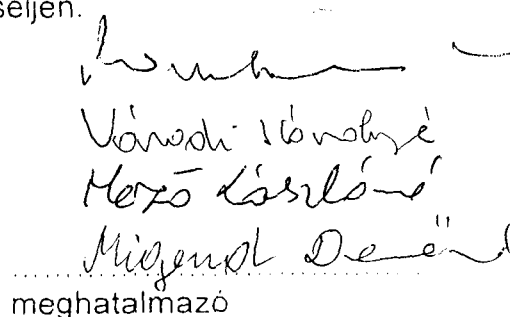 seljen.
Váradi Károlyné
Mező Lászlóné
Migend Demén
meghatalmazó